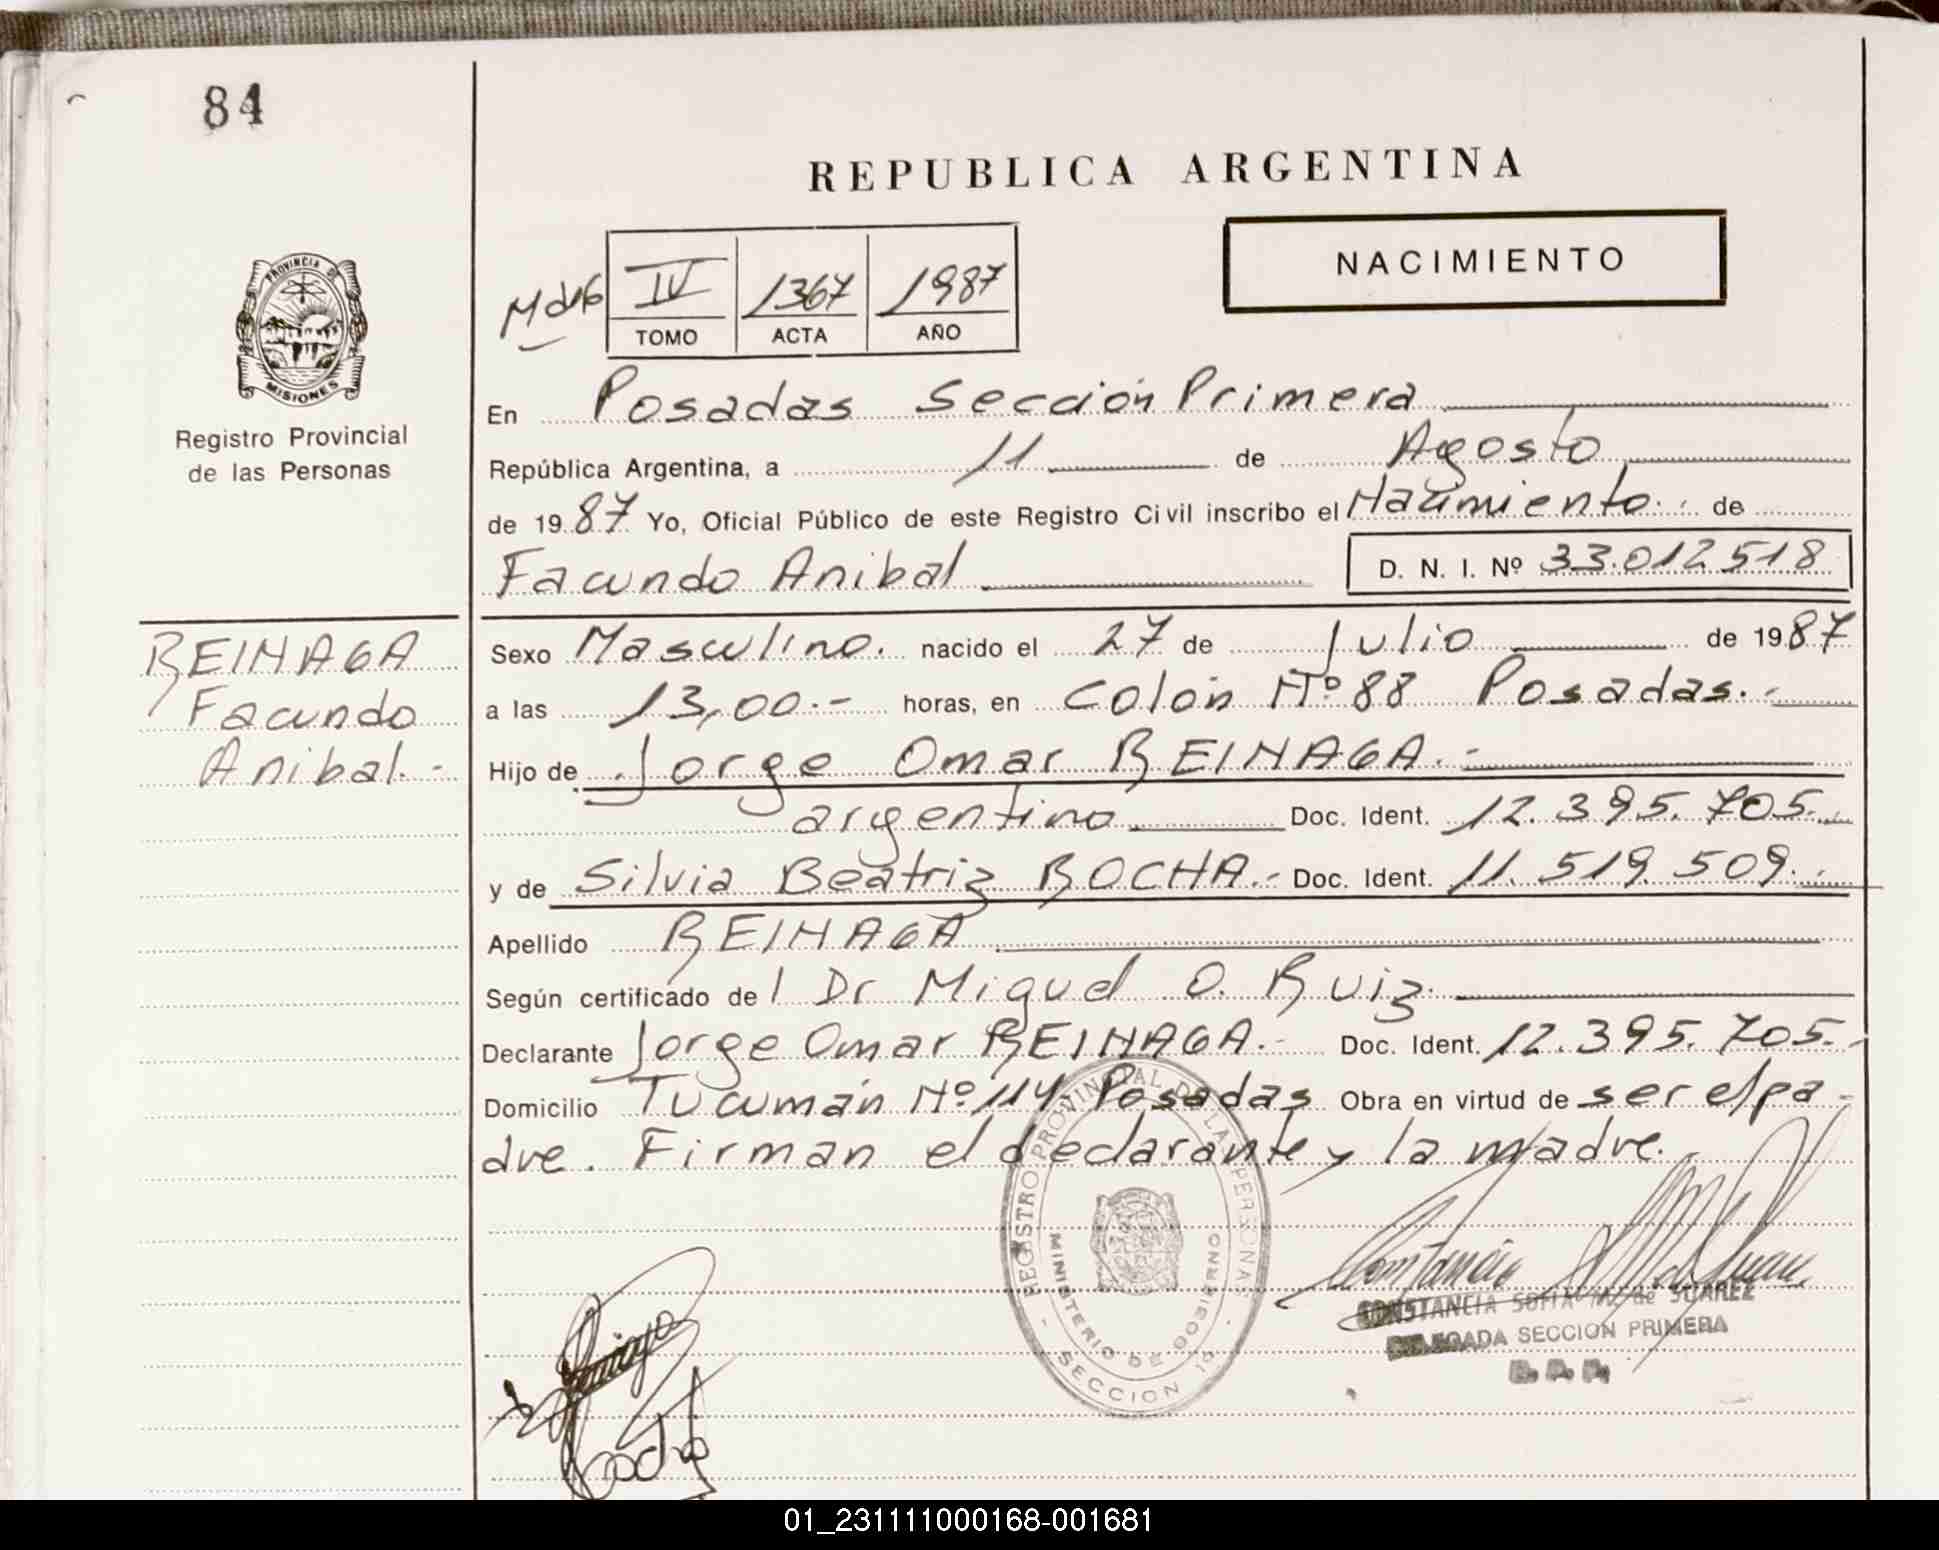 84
REPUBLICA ARGENTINA
NACIMIENTO
IV 1367 1987
TOMO ACTA AÑO
PROVINCIA DE
MISIONES
Registro Provincial
de las Personas
En Posadas Sección Primera
República Argentina, a 11 de Agosto
de 1987 Yo, Oficial Público de este Registro Civil inscribo el Nacimiento de
Facundo Anibal D. N. I. Nº 33.012.518
REINAGA
Facundo
Anibal.-
Sexo Masculino. nacido el 27 de Julio de 1987
a las 13,00.- horas, en Colón Nº 88 Posadas.-
Hijo de Jorge Omar REINAGA.-
argentino Doc. Ident. 12.395.705.-
y de Silvia Beatriz ROCHA.- Doc. Ident. 11.519.509.-
Apellido REINAGA
Según certificado del Dr Miguel O. Ruiz.
Declarante Jorge Omar REINAGA.- Doc. Ident. 12.395.705.-
Domicilio Tucumán Nº 114 Posadas Obra en virtud de ser el pa-
dre. Firman el declarante y la madre.
REGISTRO PROVINCIAL DE LAS PERSONAS
MINISTERIO DE GOBIERNO
- SECCION 1º -
CONSTANCIA SOFIA M. de SUAREZ
DELEGADA SECCION PRIMERA
01_231111000168-001681